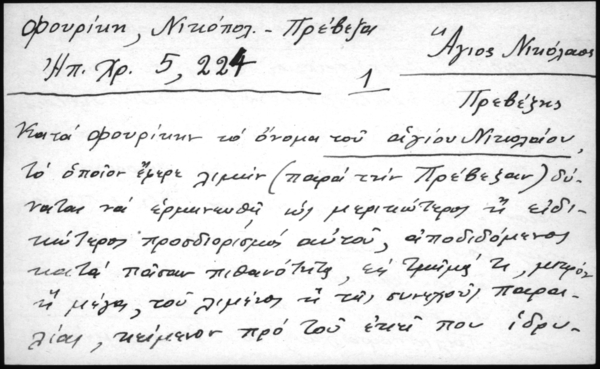 Φουρίκη, Νικόπολ. - Πρέβεζα
Ἅγιος Νικόλαος
Ἠπ. Χρ. 5, 224
1
Πρεβέζης
Κατά Φουρίκην τό ὄνομα τοῦ ἁγίου Νικολάου,
τό ὁποῖον ἔφερε λιμήν (παρά τήν Πρέβεζαν) δύ-
ναται νά ἑρμηνευθῆ ὡς μερικώτερος ἤ εἰδι-
κώτερος προσδιορισμός αὐτοῦ, ἀποδιδόμενος
κατά πᾶσαν πιθανότητα, εἰς τμῆμά τι, μικρόν
ἤ μέγα, τοῦ λιμένος ἤ τῆς συνεχοῦς παρα-
λίας, κείμενον πρό τοῦ ἐκεῖ που ἱδρυ-